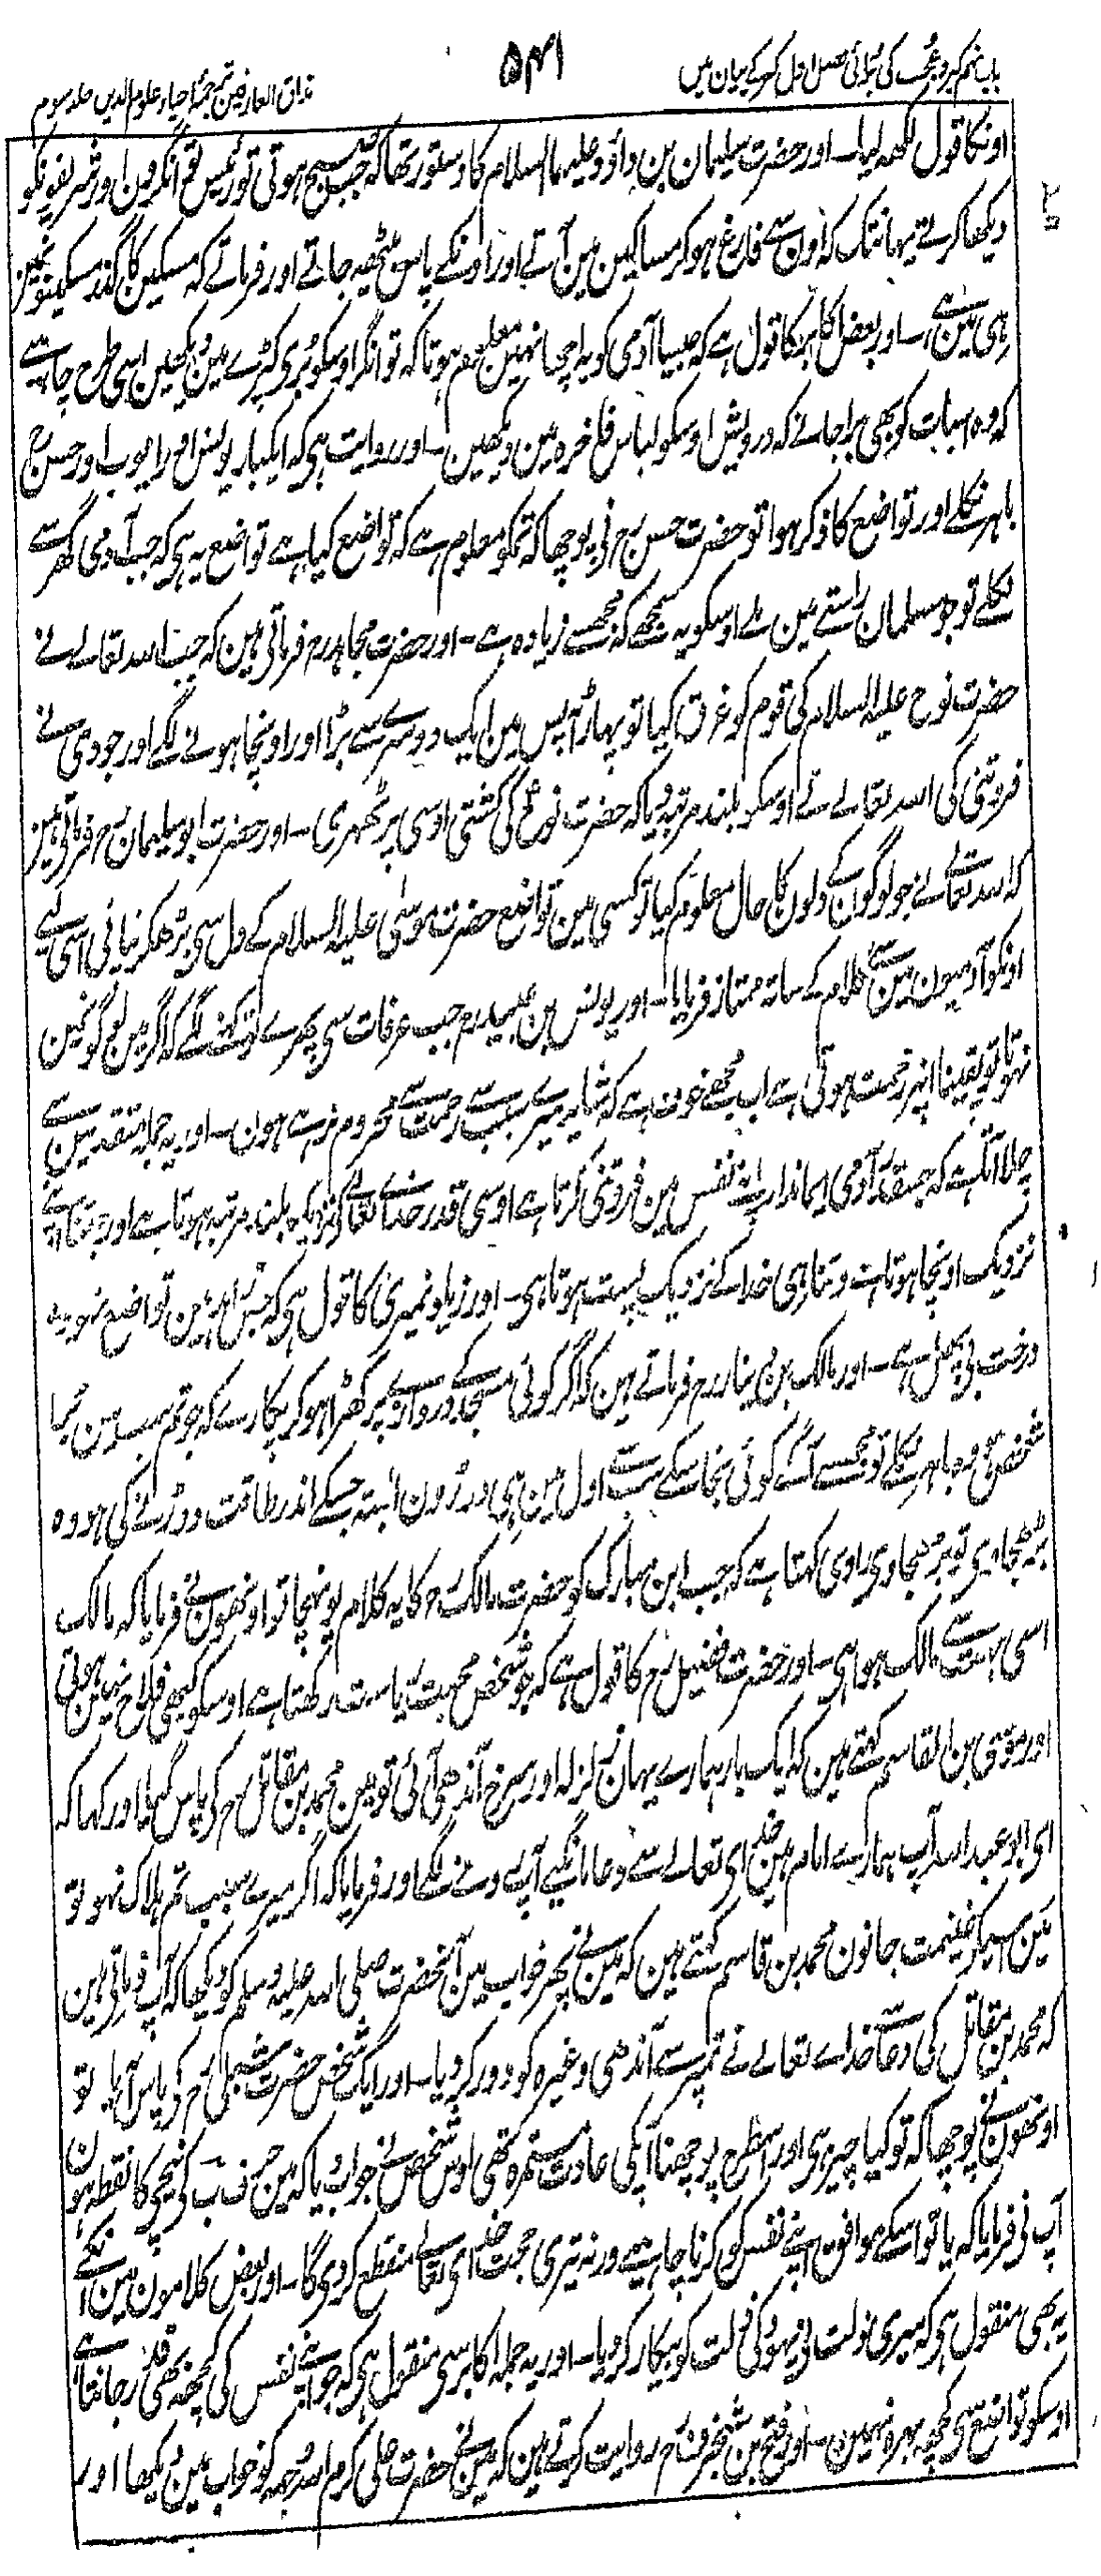 باب نہم کبر و عجب کی برائی فصل اول کبر کے بیان میں
۵۴۱
مذاق العارفین ترجمۂ احیاء علوم الدین جلد سوم
اونکا قول لکھہ لیا۔ اور حضرت سلیمان بن داؤد علیہما السلام کا دستور تھا کہ جب صبح ہوتی تو رئیس تو انگرون اور شریفونکو
دیکھا کرتے یہانتک کہ اون سے فارغ ہو کر مساکین مین آتے اور اونکے پاس بیٹھہ جاتے اور فرماتے کہ مسکین کا گذر مسکینونمین
ہی مین ہے۔ اور بعض اکابر کا قول ہے کہ جیسا آدمی کو یہ اچھا نہین معلوم ہوتا کہ تو انگر اوسکو بُری کپڑے مین دیکھین اسی طرح چاہیے
کہ وہ اسبات کو بھی برا جانے کہ درویش اوسکو لباس فاخرہ مین دیکھین۔ اور روایت ہی کہ ایکبار یونس اور ایوب اور حسن رح
باہر نکلے اور تواضع کا ذکر ہوا تو حضرت حسن رح نی پوچھا کہ تمکو معلوم ہے کہ تواضع کیا ہے تواضع یہ ہی کہ جب آدمی گھر سے
نکلے تو جو مسلمان راستے مین ملے اوسکو یہ سمجھے کہ مجھسے زیادہ ہے۔ اور حضرت مجاہد رح فرماتی ہین کہ جب اللہ تعالے نے
حضرت نوح علیہ السلام کی قوم کو غرق کیا تو پہاڑ آپس مین ایک دوسرے سے بڑا اور اونچا ہونے لگے اور جودی نے
فروتنی کی اللہ تعالے نے اوسکو بلند مرتبہ دیا کہ حضرت نوح کی کشتی اوسی پر ٹھہری۔ اور حضرت ابو سلیمان رح فرماتی ہین
کہ اللہ تعالے نے جو لوگون کے دلون کا حال معلوم کیا تو کسی مین تواضع حضرت موسی علیہ السلام کے دل سی بڑھکر نپائی اسی لیے
اونکو آدمیون مین سے کلام کے ساتہ ممتاز فرمایا۔ اور یونس بن عبید رح جب عرفات سی پھرے تو کہنے لگے کہ اگر مین لوگونمین
نہوتا تو یقینا انپر رحمت ہوتی ہے اب مجھے خوف ہے کہ شاید میرے سبب سے رحمت سے محروم نرہے ہون۔ اور یہ جملہ متقدمین سے
چلا آتا ہے کہ جسقدر آدمی ایماندار اپنے نفس مین فروتنی کرتا ہے اوسی قدر خدائے تعالے کے نزدیک بلند مرتبہ ہوتا ہے اور جتنا اپنے
نزدیک اونچا ہوتا ہے وتنا ہی خدا کے نزدیک پست ہوتا ہی۔ اور زیاد نمیری کا قول ہی کہ جس زاہد مین تواضع نہو وہ
درخت بی پھل ہے۔ اور مالک بن دینار رح فرماتے ہین کہ اگر کوئی مسجد کے دروازے پر کھڑا ہو کر پکارے کہ جو تم سب مین برا
شخص ہو وہ باہر نکلے تو مجھسے آگے کوئی نجا سکے سب سے اول مین ہی دوڑون البتہ جسکے اندر طاقت دوڑنے کی ہو وہ
بڑھجاوی تو بڑھجاوی راوی کہتا ہے کہ جب ابن مبارک کو حضرت مالک رح کا یہ کلام پہنچا تو اونھون نے فرمایا کہ مالک
اسی بہت سے مالک ہوا ہی۔ اور حضرت فضیل رح کا قول ہے کہ جو شخص محبت ریاست رکھتا ہے اوسکو کبھی فلاح نہین ہوتی
اور موسی بن القاسم کہتے ہین کہ ایک بار ہمارے یہان زلزلہ اور سرخ آندھی آئی تو مین محمد بن مقاتل رح کی پاس گیا اور کہا کہ
ای ابو عبد اللہ آپ ہمارے امام ہین خدای تعالے سے دعا مانگیے آپ رونے لگے اور فرمایا کہ اگر میرے سبب تم ہلاک نہو تو
مین اسیکو غنیمت جانون محمد بن قاسم کہتے ہین کہ مین نے پھر خواب مین آنحضرت صلی اللہ علیہ وسلم کو دیکھا کہ آپ فرماتی ہین
کہ محمد بن مقاتل کی دعا سے خداے تعالے نے تمپر سے آندھی وغیرہ کو دور کر دیا۔ اور ایک شخص حضرت شبلی رح کی پاس آیا تو
اونھون نے پوچھا کہ تو کیا چیز ہی اور اسطرح پوچھنا آپکی عادت مستمرہ تھی اوس شخص نے جواب دیا کہ مین حرف ب کی نیچے کا نقطہ ہون
آپ نی فرمایا کہ یا تو اسکے موافق اپنے نفس کو کرنا چاہیے ورنہ تیری حجت خدای تعالے منقطع کر دی گا۔ اور بعض کلامون مین اونکے
یہ بھی منقول ہی کہ میری ذلت نی یہود کی ذلت کو بیکار کر دیا۔ اور یہ جملہ اکابر سی منقول ہی کہ جو اپنے نفس کی کچھہ بھی قدر جانتا ہے
اوسکو تواضع سی کچھہ بہرہ نہین۔ اور فتح بن شخرف رح روایت کرتے ہین کہ مین نے حضرت علی کرم اللہ وجہہ کو خواب مین دیکھا اور